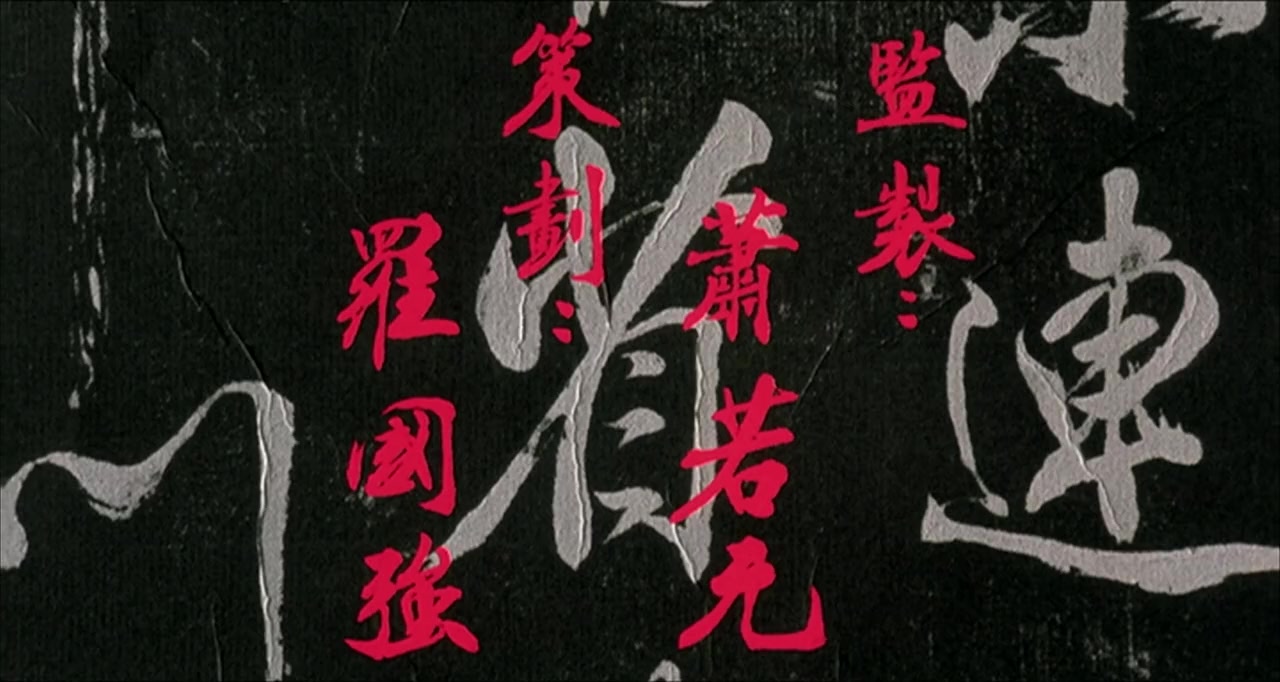 監製：
蕭若元
策劃：
羅國強
連